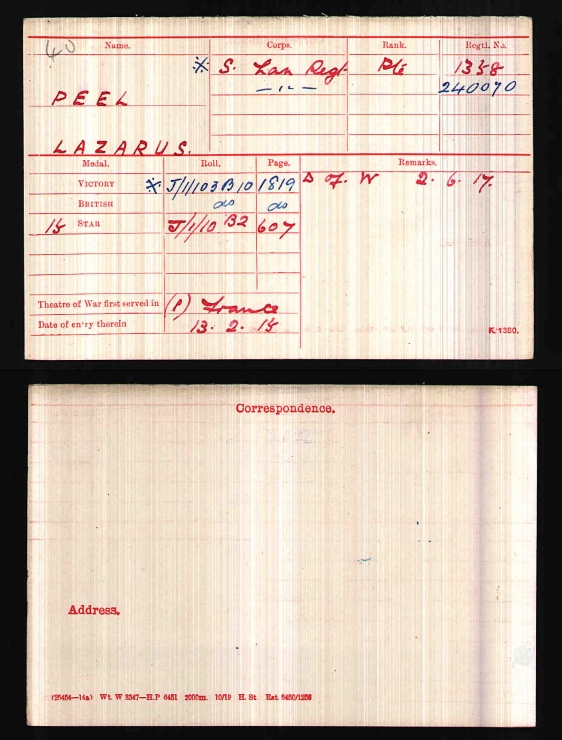 40
Name. Corps. Rank. Regtl. No.
※ S. Lan Regt Pte 1358
PEEL — " — 240070
LAZARUS.
Medal. Roll. Page. Remarks.
VICTORY ※ J/1/103 B10 1819 D of W 2. 6. 17.
BRITISH do do
15 STAR J/1/10 B2 607
Theatre of War first served in (1) France
Date of entry therein 13. 2. 15
K. 1380.
Correspondence.
Address.
(25454—14a) Wt. W 3347—H.P 6451 2000m. 10/19 H. St. Est. 5450/1256